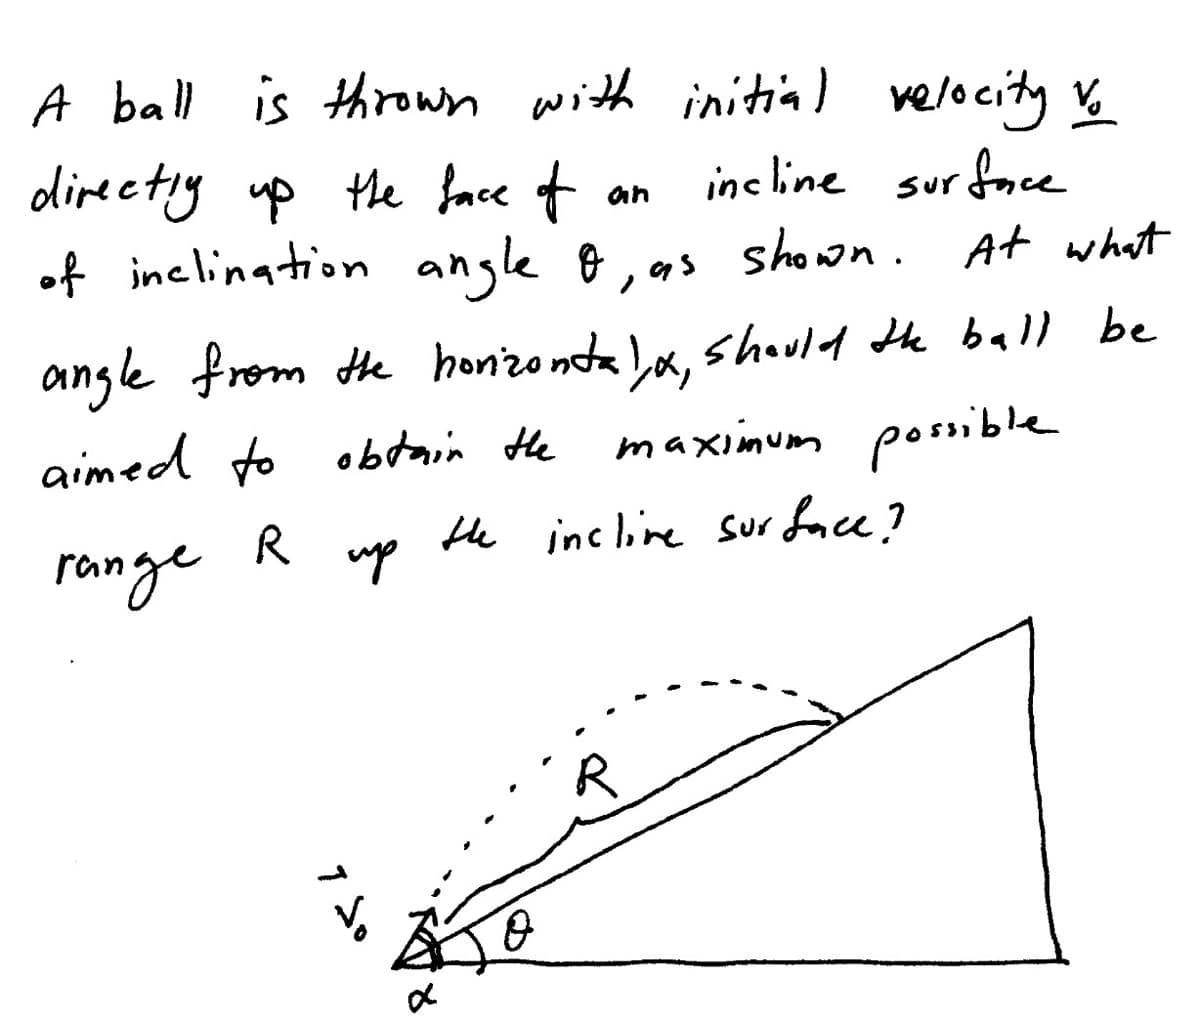 A ball is thrown with initial velocity V₀
directly up the face of an incline surface
of inclination angle θ, as shown. At what
angle from the horizontal, α, should the ball be
aimed to obtain the maximum possible
range R up the incline surface?
R
V₀
θ
α